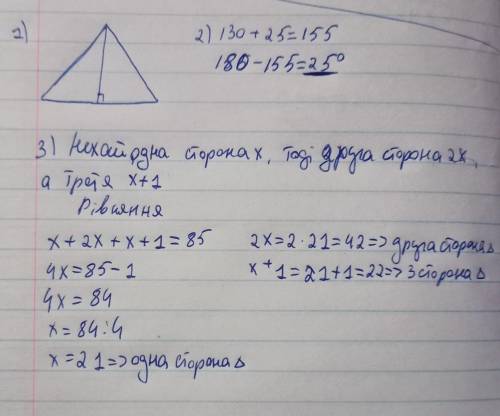 1)
2) 130+25=155
180-155=25°
3) Нехай одна сторона x, тоді друга сторона 2x,
а третя x+1
Рівняння
x+2x+x+1=85
4x=85-1
4x=84
x=84:4
x=21=>одна сторона △
2x=2·21=42=>друга сторона △
x+1=21+1=22=>3 сторона △